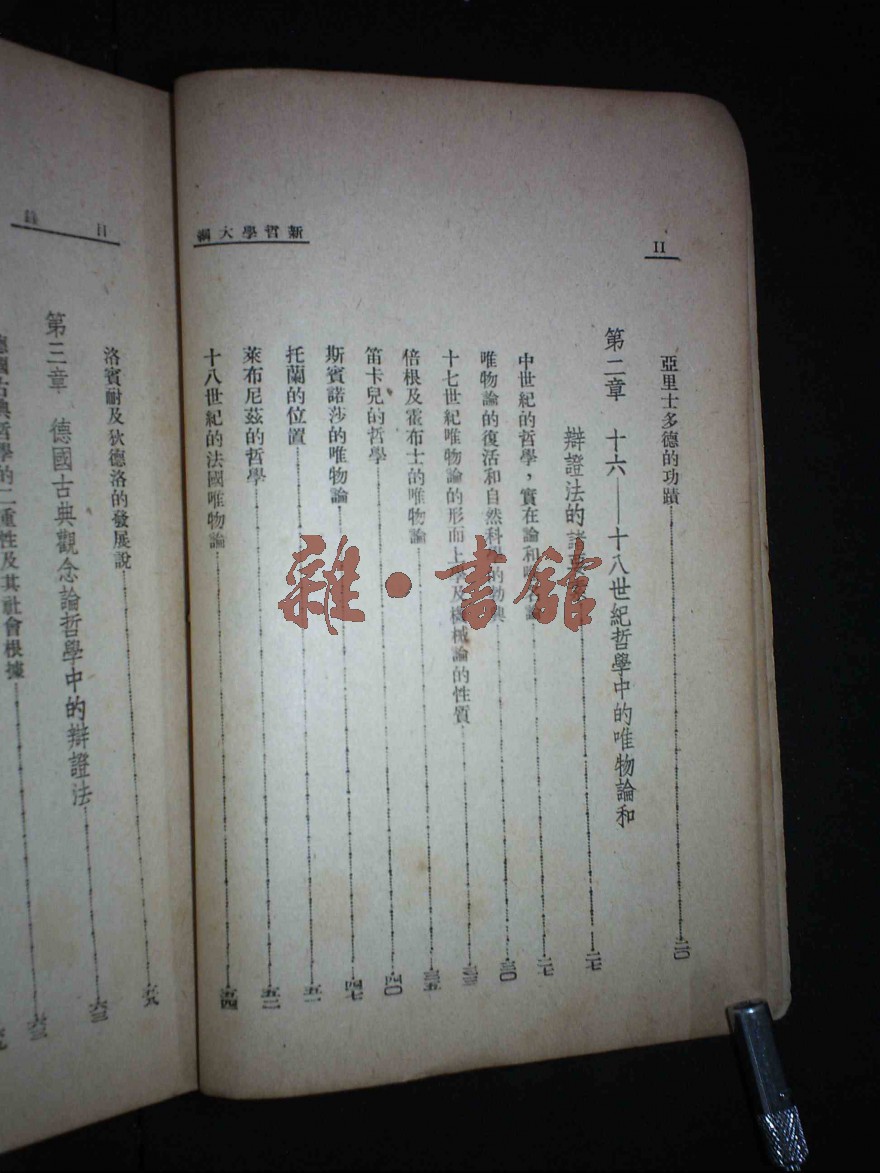 II
新哲學大綱
亞里士多德的功蹟 二〇
第二章 十六——十八世紀哲學中的唯物論和
辯證法的諸 二七
中世紀的哲學，實在論和 論 二七
唯物論的復活和自然科 的勃興 三〇
十七世紀唯物論的形而上學及機械論的性質 三三
倍根及霍布士的唯物論 三五
笛卡兒的哲學 四〇
斯賓諾莎的唯物論 四七
托蘭的位置 五一
萊布尼茲的哲學 五二
十八世紀的法國唯物論 五四
目錄
洛賓耐及狄德洛的發展說 五八
第三章 德國古典觀念論哲學中的辯證法 六三
德國古典哲學的二重性及其社會根據 六三
雜·書館